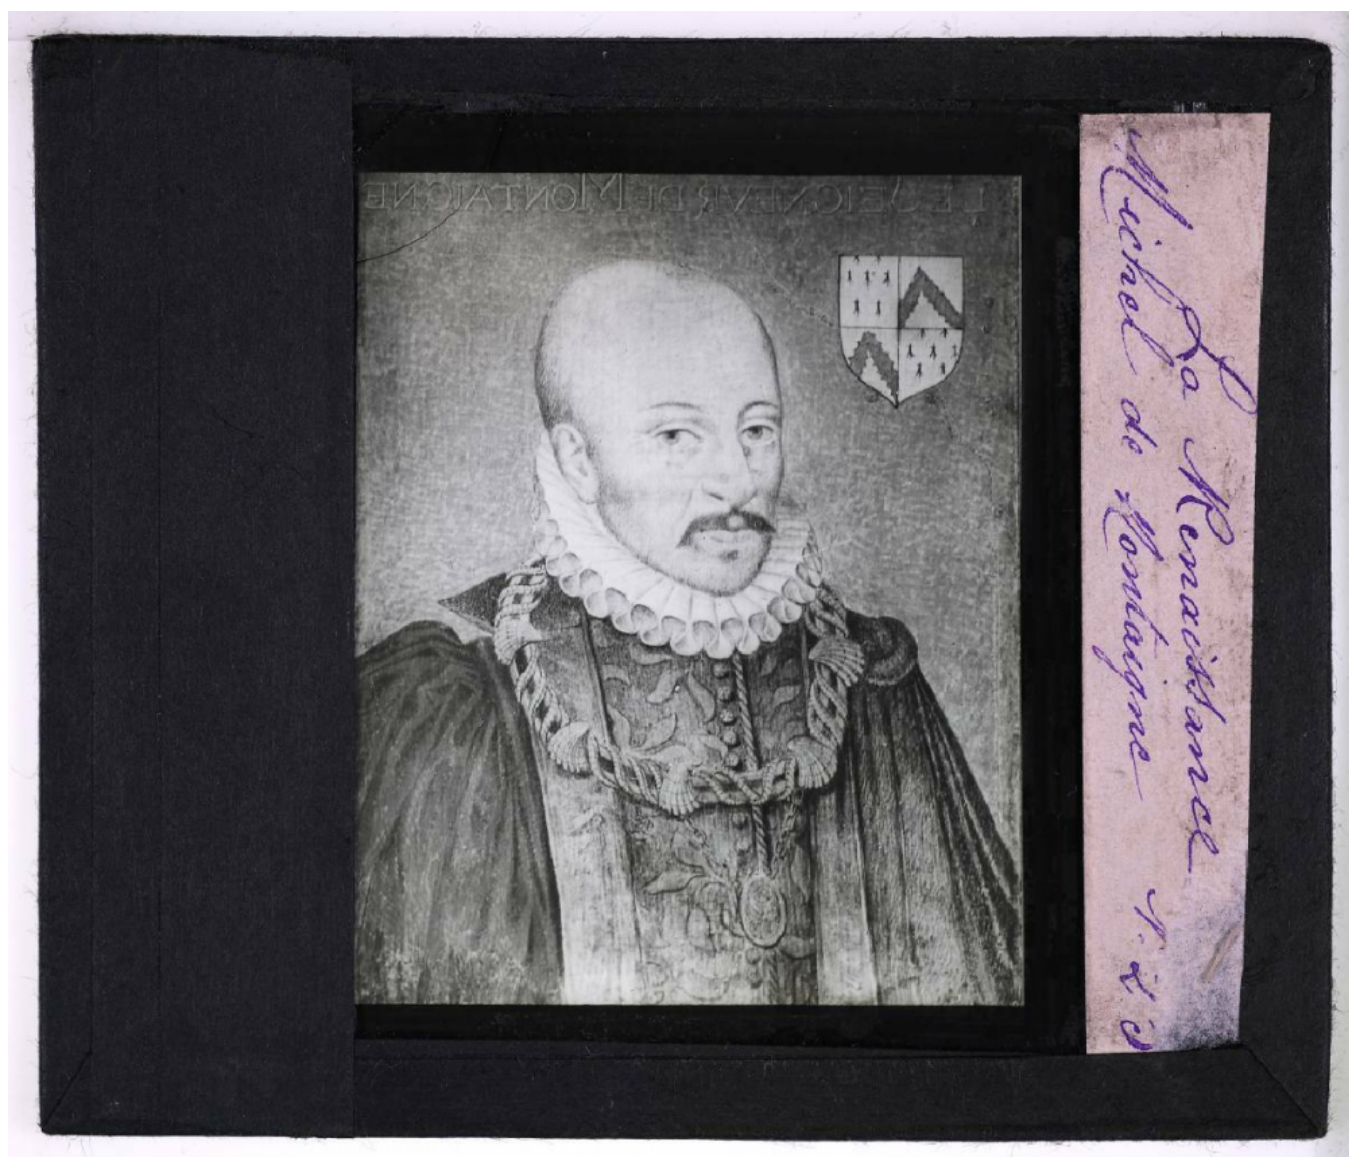 LE SEIGNEVR DE MONTAIGNE
La Renaissance
Michel de Montaigne